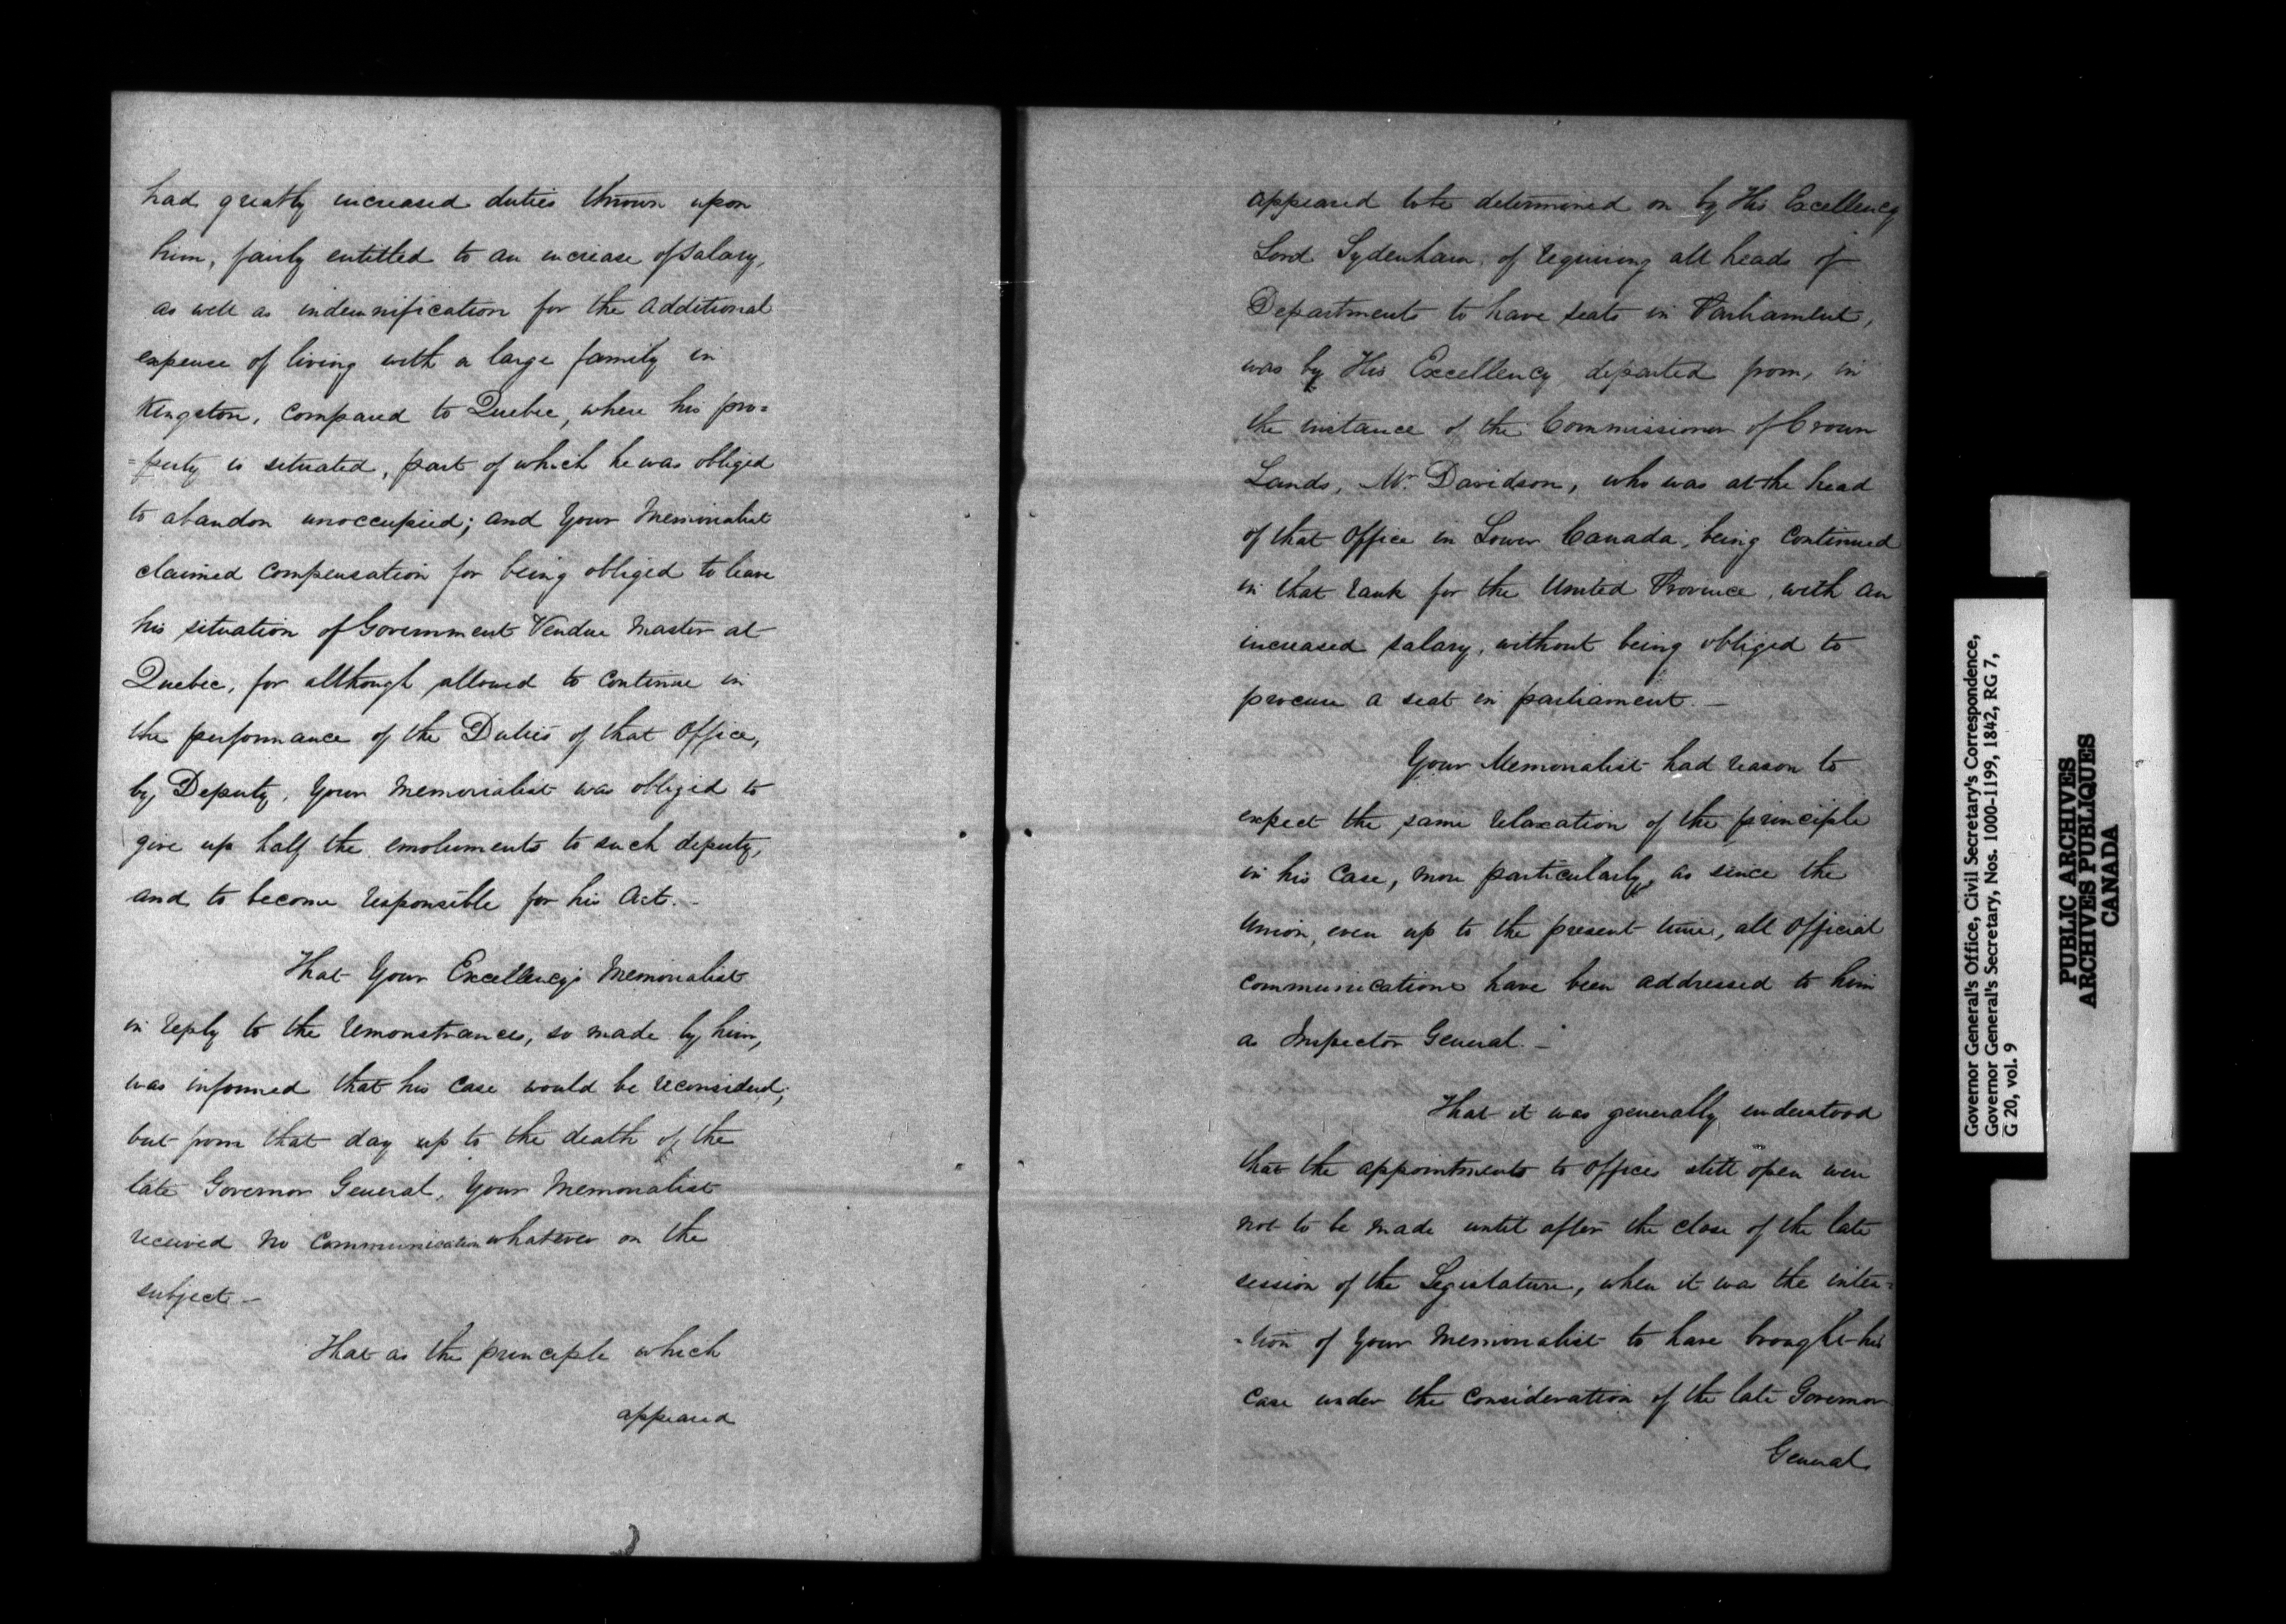 had greatly increased duties thrown upon
him, fairly entitled to an increase of salary,
as well as indemnification for the additional
expense of living with a large family in
Kingston, compared to Quebec, where his pro=
=perty is situated, part of which he was obliged
to abandon unoccupied; and Your Memorialist
claimed compensation for being obliged to leave
his situation of Government Vendue Master at
Quebec, for although allowed to continue in
the performance of the Duties of that Office,
by Deputy, Your Memorialist was obliged to
give up half the emoluments to such deputy,
and to become responsible for his Acts.-
That Your Excellency's Memorialist
in reply to the remonstrances, so made by him,
was informed that his case would be reconsidered,
but from that day up to the death of the
late Governor General, Your Memorialist
received no communication whatever on the
subject -
That as the principle which
appeared
appeared to be determined on by His Excellency
Lord Sydenham, of requiring all heads of
Departments to have seats in Parliament,
was by His Excellency departed from, in
the instance of the Commissioner of Crown
Lands, Mr. Davidson, who was at the head
of that Office in Lower Canada, being continued
in that rank for the United Province, with an
increased salary, without being obliged to
procure a seat in parliament. -
Your Memorialist had reason to
expect the same relaxation of the principle
in his case, more particularly, as since the
Union, even up to the present time, all official
communications have been addressed to him
as Inspector General. -
That it was generally understood
that the appointments to offices still open were
not to be made until after the close of the late
session of the Legislature, when it was the inten=
-tion of Your Memorialist to have brought his
case under the consideration of the late Governor
General
Governor General's Office, Civil Secretary's Correspondence,
Governor General's Secretary, Nos. 1000-1199, 1842, RG 7,
G 20, vol. 9
PUBLIC ARCHIVES
ARCHIVES PUBLIQUES
CANADA